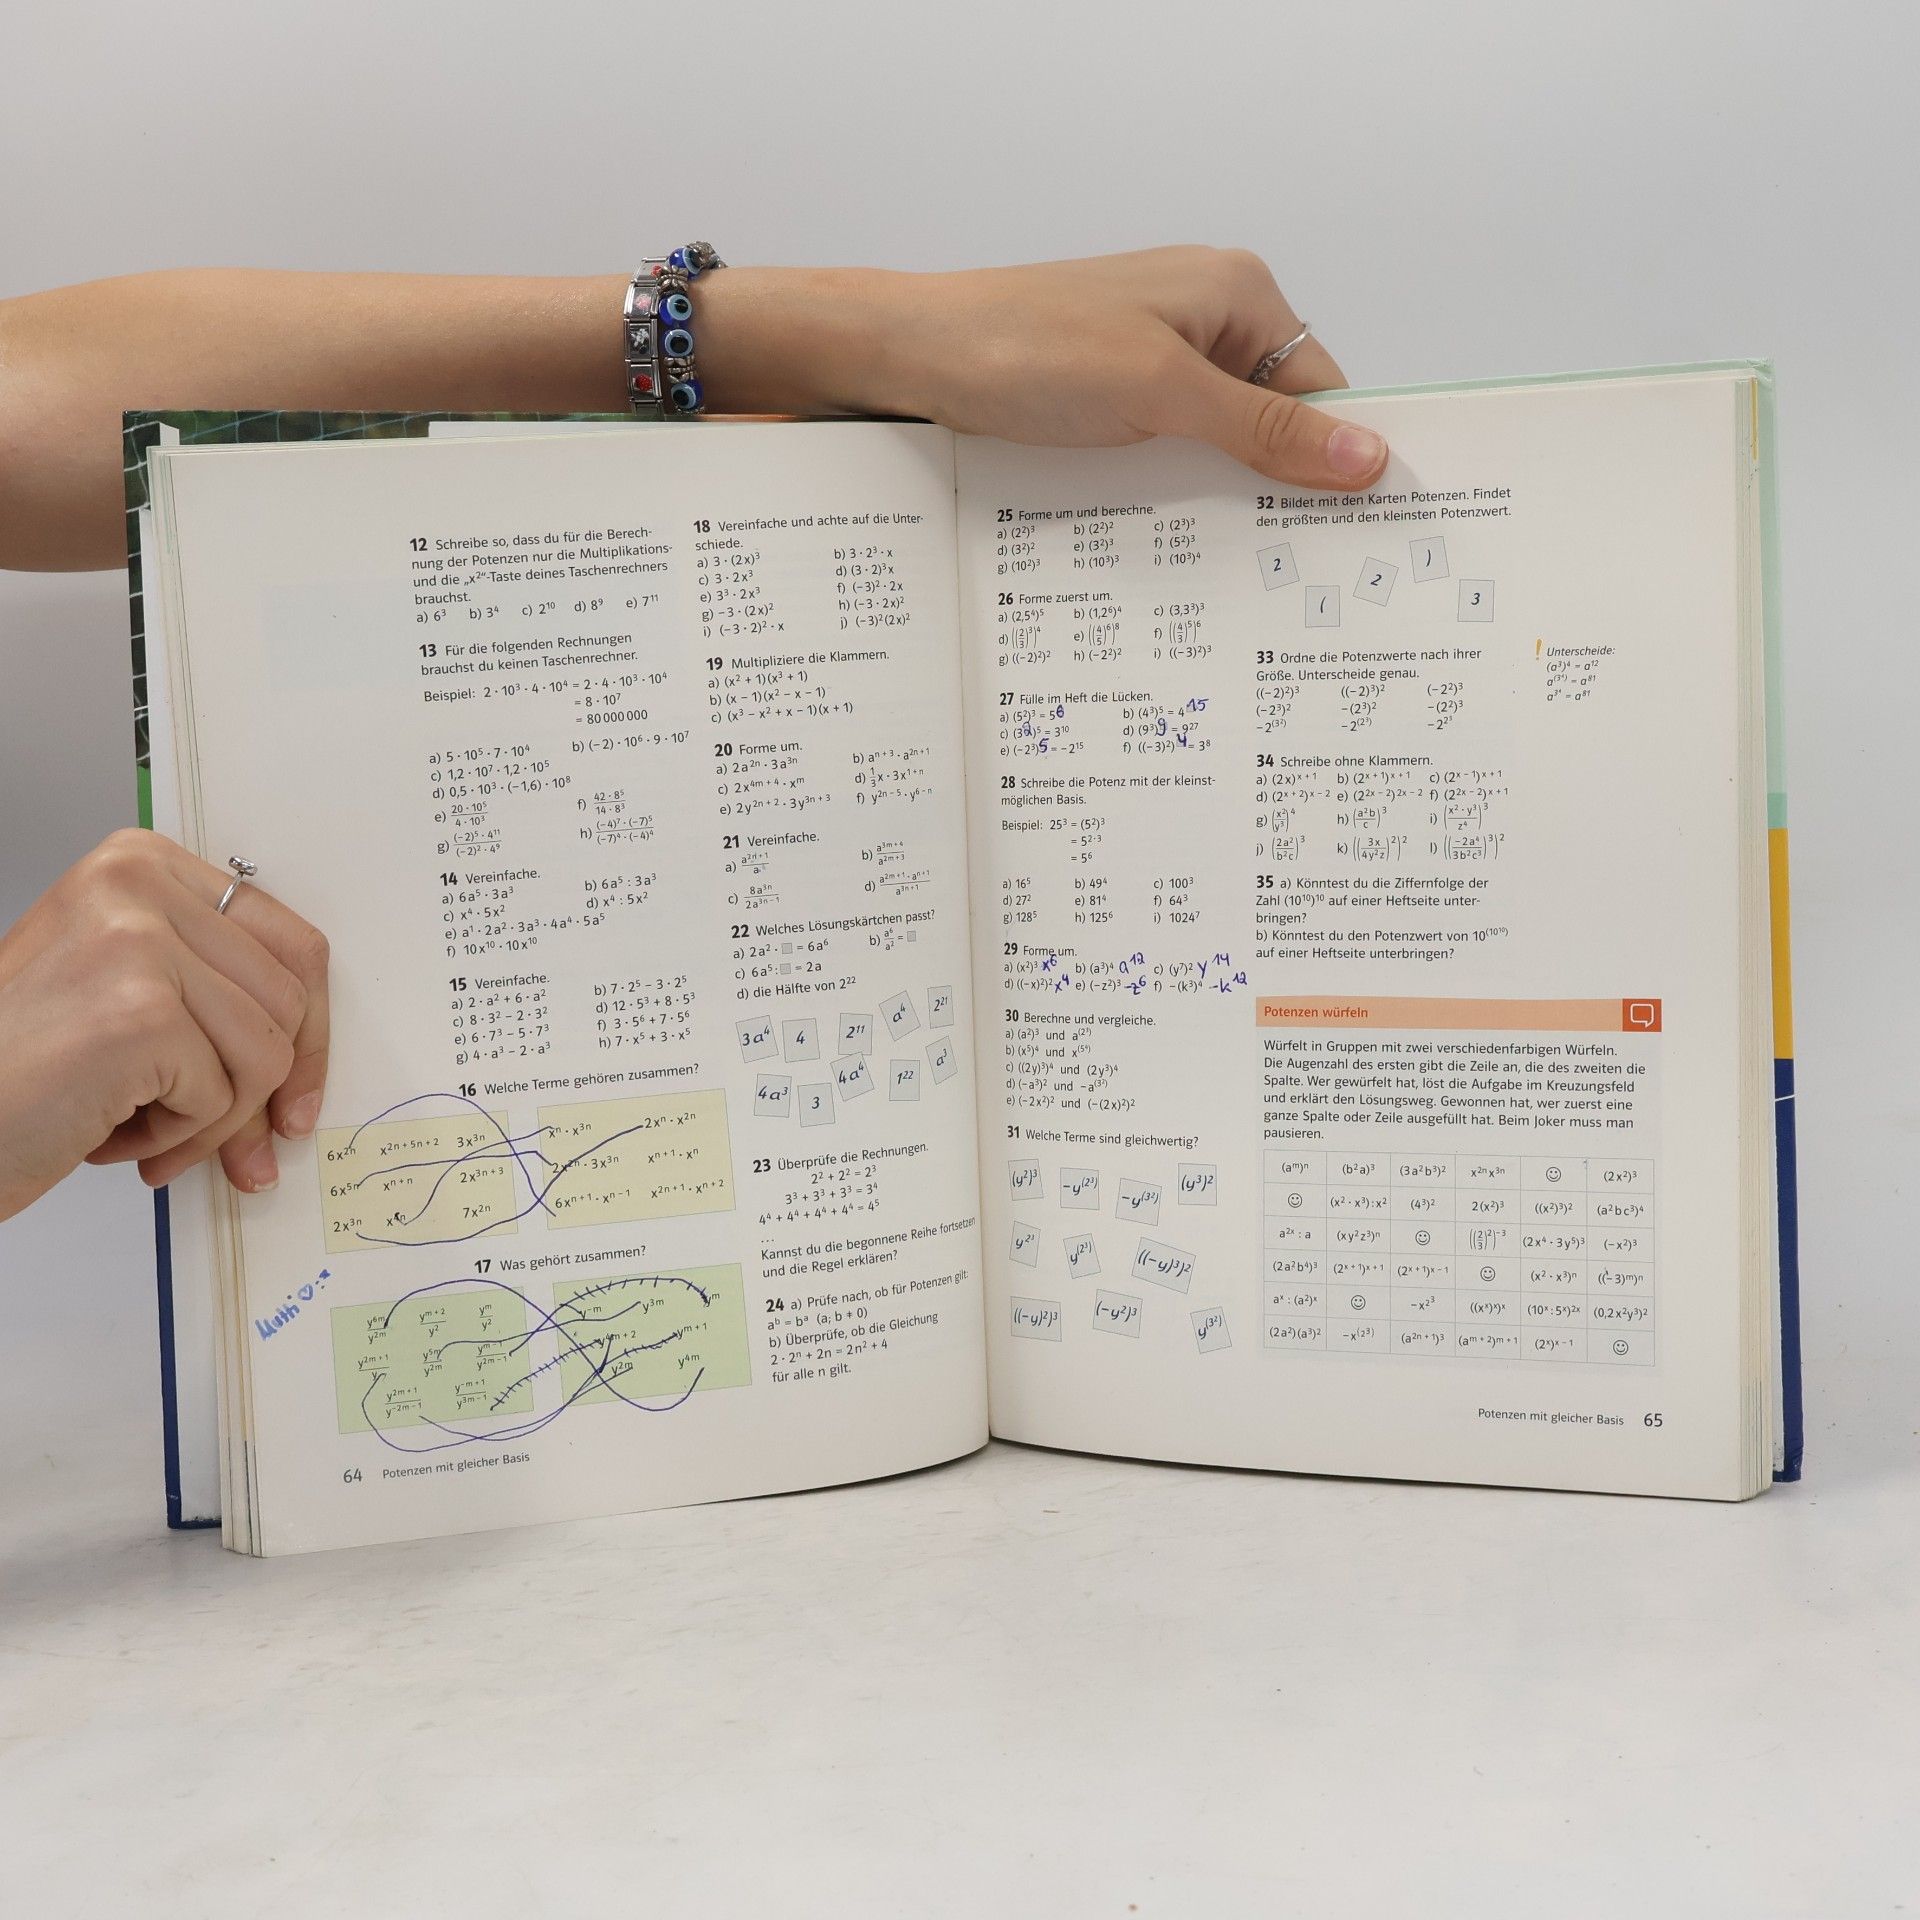 12 Schreibe so, dass du für die Berech-
nung der Potenzen nur die Multiplikations-
und die „x²"-Taste deines Taschenrechners
brauchst.
a) 6³ b) 3⁴ c) 2¹⁰ d) 8⁹ e) 7¹¹
13 Für die folgenden Rechnungen
brauchst du keinen Taschenrechner.
Beispiel: 2 · 10³ · 4 · 10⁴ = 2 · 4 · 10³ · 10⁴
= 8 · 10⁷
= 80 000 000
a) 5 · 10⁵ · 7 · 10⁴ b) (−2) · 10⁶ · 9 · 10⁷
c) 1,2 · 10⁷ · 1,2 · 10⁵
d) 0,5 · 10³ · (−1,6) · 10⁸
e) (20 · 10⁵)/(4 · 10³) f) (42 · 8⁵)/(14 · 8³)
g) ((−2)⁵ · 4¹¹)/((−2)² · 4⁹) h) ((−4)⁷ · (−7)⁵)/((−7)⁴ · (−4)⁴)
14 Vereinfache.
a) 6a⁵ · 3a³ b) 6a⁵ : 3a³
c) x⁴ · 5x² d) x⁴ : 5x²
e) a¹ · 2a² · 3a³ · 4a⁴ · 5a⁵
f) 10x¹⁰ · 10x¹⁰
15 Vereinfache.
a) 2 · a² + 6 · a² b) 7 · 2⁵ − 3 · 2⁵
c) 8 · 3² − 2 · 3² d) 12 · 5³ + 8 · 5³
e) 6 · 7³ − 5 · 7³ f) 3 · 5⁶ + 7 · 5⁶
g) 4 · a³ − 2 · a³ h) 7 · x⁵ + 3 · x⁵
16 Welche Terme gehören zusammen?
6x²ⁿ x²ⁿ⁺⁵ⁿ⁺² 3x³ⁿ
6x⁵ⁿ xⁿ⁺ⁿ 2x³ⁿ⁺³
2x³ⁿ 7x²ⁿ
xⁿ · x³ⁿ 2xⁿ · x²ⁿ
2x²ⁿ · 3x³ⁿ xⁿ⁺¹ · xⁿ
6xⁿ⁺¹ · xⁿ⁻¹ x²ⁿ⁺¹ · xⁿ⁺²
17 Was gehört zusammen?
y⁶ᵐ/y²ᵐ yᵐ⁺²/y² yᵐ/y²
y²ᵐ⁺¹/y y⁵ᵐ/y²ᵐ yᵐ⁻¹/y²ᵐ⁻¹
y²ᵐ⁺¹/y⁻²ᵐ⁻¹ y⁻ᵐ⁺¹/y³ᵐ⁻¹
y⁻ᵐ y³ᵐ yᵐ
y⁴ᵐ⁺² yᵐ⁺¹
y²ᵐ y⁴ᵐ
64 Potenzen mit gleicher Basis
18 Vereinfache und achte auf die Unter-
schiede.
a) 3 · (2x)³ b) 3 · 2³ · x
c) 3 · 2x³ d) (3 · 2)³x
e) 3³ · 2x³ f) (−3)² · 2x
g) −3 · (2x)² h) (−3 · 2x)²
i) (−3 · 2)² · x j) (−3)²(2x)²
19 Multipliziere die Klammern.
a) (x² + 1)(x³ + 1)
b) (x − 1)(x² − x − 1)
c) (x³ − x² + x − 1)(x + 1)
20 Forme um.
a) 2a²ⁿ · 3a³ⁿ b) aⁿ⁺³ · a²ⁿ⁺¹
c) 2x⁴ᵐ⁺⁴ · xᵐ d) 1/3 x · 3x¹⁺ⁿ
e) 2y²ⁿ⁺² · 3y³ⁿ⁺³ f) y²ⁿ⁻⁵ · y⁶⁻ⁿ
21 Vereinfache.
a) b) a³ᵐ⁺⁴/a²ᵐ⁺³
c) 8a³ⁿ/2a³ⁿ⁻¹ d) (a²ᵐ⁺¹ · aⁿ⁺¹)/a³ⁿ⁺¹
22 Welches Lösungskärtchen passt?
a) 2a² · □ = 6a⁶ b) a⁶/a² = □
c) 6a⁵ : □ = 2a
d) die Hälfte von 2²²
3a⁴ 4 2¹¹ a⁴ 2²¹
4a³ 3 4a⁴ 1²² a³
23 Überprüfe die Rechnungen.
2² + 2² = 2³
3³ + 3³ + 3³ = 3⁴
4⁴ + 4⁴ + 4⁴ + 4⁴ = 4⁵
...
Kannst du die begonnene Reihe fortsetzen
und die Regel erklären?
24 a) Prüfe nach, ob für Potenzen gilt:
aᵇ = bᵃ (a; b ≠ 0)
b) Überprüfe, ob die Gleichung
2 · 2ⁿ + 2n = 2n² + 4
für alle n gilt.
25 Forme um und berechne.
a) (2²)³ b) (2²)² c) (2³)³
d) (3²)² e) (3²)³ f) (5²)³
g) (10²)³ h) (10³)³ i) (10³)⁴
26 Forme zuerst um.
a) (2,5⁴)⁵ b) (1,2⁶)⁴ c) (3,3³)³
d) ((2/3)³)⁴ e) ((4/5)⁶)⁸ f) ((4/3)⁵)⁶
g) ((−2)²)² h) (−2²)² i) ((−3)²)³
27 Fülle im Heft die Lücken.
a) (5²)³ = 5⁶ b) (4³)⁵ = 4¹⁵
c) (3²)⁵ = 3¹⁰ d) (9³)⁹ = 9²⁷
e) (−2³)⁵ = −2¹⁵ f) ((−3)²)⁴ = 3⁸
28 Schreibe die Potenz mit der kleinst-
möglichen Basis.
Beispiel: 25³ = (5²)³
= 5²·³
= 5⁶
a) 16⁵ b) 49⁴ c) 100³
d) 27² e) 81⁴ f) 64³
g) 128⁵ h) 125⁶ i) 1024⁷
29 Forme um.
a) (x²)³ x⁶ b) (a³)⁴ a¹² c) (y⁷)² y¹⁴
d) ((−x)²)² x⁴ e) (−z²)³ −z⁶ f) −(k³)⁴ −k¹²
30 Berechne und vergleiche.
a) (a²)³ und a^(2³)
b) (x⁵)⁴ und x^(5⁴)
c) ((2y)³)⁴ und (2y³)⁴
d) (−a³)² und −a^(3²)
e) (−2x²)² und (−(2x)²)²
31 Welche Terme sind gleichwertig?
(y²)³ −y^(2³) −y^(3²) (y³)²
y^2³ y^(2³) ((−y)³)²
((−y)²)³ (−y²)³ y^(3²)
32 Bildet mit den Karten Potenzen. Findet
den größten und den kleinsten Potenzwert.
2 ( 2 ) 3
33 Ordne die Potenzwerte nach ihrer
Größe. Unterscheide genau.
((−2)²)³ ((−2)³)² (−2²)³
(−2³)² −(2³)² −(2²)³
−2^(3²) −2^(2³) −2^2³
! Unterscheide:
(a³)⁴ = a¹²
a^(3⁴) = a⁸¹
a^3⁴ = a⁸¹
34 Schreibe ohne Klammern.
a) (2x)ˣ⁺¹ b) (2ˣ⁺¹)ˣ⁺¹ c) (2ˣ⁻¹)ˣ⁺¹
d) (2ˣ⁺²)ˣ⁻² e) (2²ˣ⁻²)²ˣ⁻² f) (2²ˣ⁻²)ˣ⁺¹
g) (x²/y³)⁴ h) (a²b/c)³ i) (x² · y³/z⁴)³
j) (2a²/b²c)³ k) ((3x/4y²z)²)² l) ((−2a⁴/3b²c³)³)²
35 a) Könntest du die Ziffernfolge der
Zahl (10¹⁰)¹⁰ auf einer Heftseite unter-
bringen?
b) Könntest du den Potenzwert von 10^(10¹⁰)
auf einer Heftseite unterbringen?
Potenzen würfeln
Würfelt in Gruppen mit zwei verschiedenfarbigen Würfeln.
Die Augenzahl des ersten gibt die Zeile an, die des zweiten die
Spalte. Wer gewürfelt hat, löst die Aufgabe im Kreuzungsfeld
und erklärt den Lösungsweg. Gewonnen hat, wer zuerst eine
ganze Spalte oder Zeile ausgefüllt hat. Beim Joker muss man
pausieren.
(aᵐ)ⁿ (b²a)³ (3a²b³)² x²ⁿx³ⁿ ☺ (2x²)³
☺ (x² · x³) : x² (4³)² 2(x²)³ ((x²)³)² (a²bc³)⁴
a²ˣ : a (xy²z³)ⁿ ☺ ((2/3)²)⁻³ (2x⁴ · 3y⁵)³ (−x²)³
(2a²b⁴)³ (2ˣ⁺¹)ˣ⁺¹ (2ˣ⁺¹)ˣ⁻¹ ☺ (x² · x³)ⁿ ((−3)ᵐ)ⁿ
aˣ : (a²)ˣ ☺ −x^2³ ((xˣ)ˣ)ˣ (10ˣ : 5ˣ)²ˣ (0,2x²y³)²
(2a²)(a³)² −x^(2³) (a²ⁿ⁺¹)³ (aᵐ⁺²)ᵐ⁺¹ (2ˣ)ˣ⁻¹ ☺
Potenzen mit gleicher Basis 65